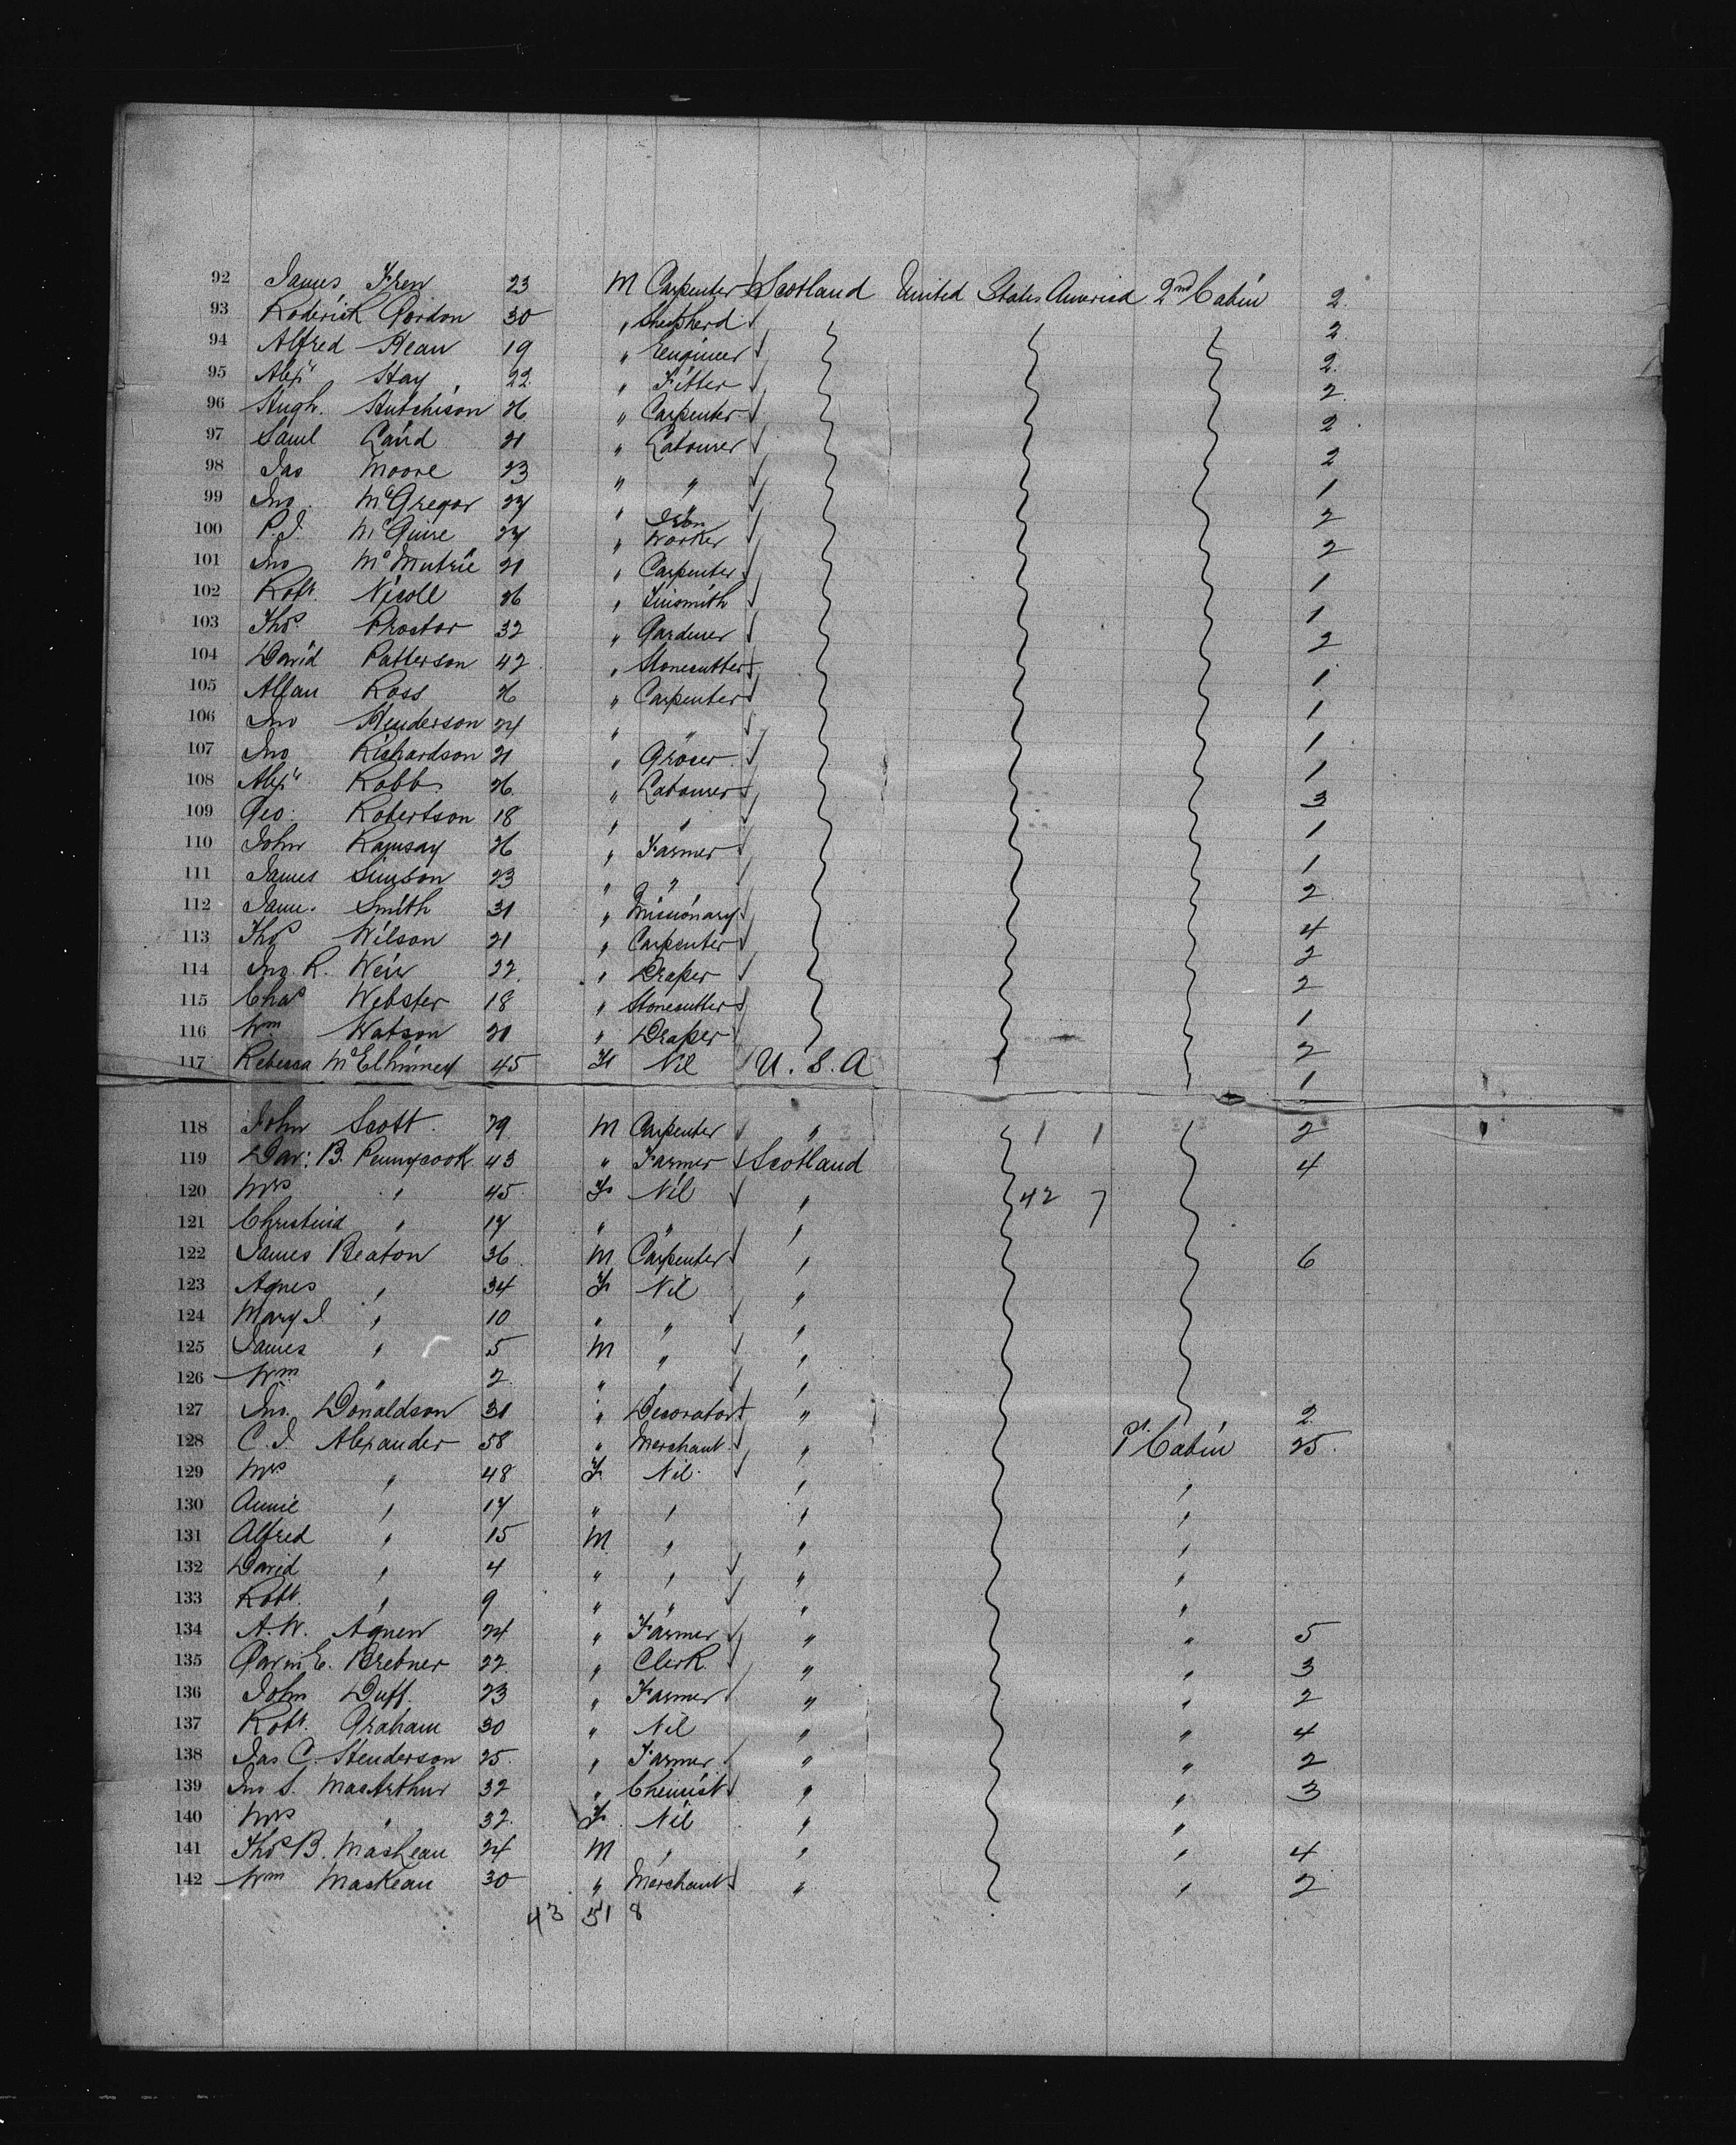 92 James Fren 23 M Carpenter Scotland United States America 2nd Cabin 2
93 Roderick Gordon 30 " Shepherd 2
94 Alfred Hean 19 " Engineer 2
95 Alexr Hay 22 " Fitter 2
96 Hugh Hutchison 26 " Carpenter 2
97 Saml Laird 21 " Labourer 2
98 Jas Moore 23 " " 1
99 Jno McGregor 24 " " 2
100 P. J. McGuire 24 " Iron Worker 2
101 Jno McMutrie 21 " Carpenter 1
102 Robt Nicoll 26 " Tinsmith 1
103 Thos Proctor 32 " Gardener 2
104 David Patterson 42 " Stonecutter 1
105 Allan Ross 26 " Carpenter 1
106 Jno Henderson 24 " " 1
107 Jno Richardson 21 " Grocer 1
108 Alexr Robb 26 " Labourer 3
109 Geo. Robertson 18 " " 1
110 John Ramsay 26 " Farmer 1
111 James Simson 23 " " 2
112 Jame. Smith 31 " Missionary 4
113 Thos Wilson 21 " Carpenter 2
114 Jno. R. Weir 22 " Draper 2
115 Chas Webster 18 " Stonecutter 1
116 Wm Watson 21 " Draper 2
117 Rebecca McElhinney 45 F Nil U. S. A 1
118 John Scott 29 M Carpenter " 1 1 2
119 Dav: B. Pennycook 43 " Farmer Scotland 4
120 Mrs " 45 F Nil " 42 7
121 Christina " 17 " " "
122 James Beaton 36 M Carpenter " 6
123 Agnes " 34 F Nil "
124 Mary J " 10 " " "
125 James " 5 M " "
126 Wm " 2 " " "
127 Jno. Donaldson 31 " Decorator " 2
128 C. J. Alexander 58 " Merchant " 1st Cabin 25
129 Mrs " 48 F Nil " "
130 Annie " 17 " " " "
131 Alfred " 15 M " " "
132 David " 4 " " " "
133 Robt. " 9 " " " "
134 A. W. Agnew 24 " Farmer " " 5
135 E. Brebner 22 " Clerk " " 3
136 John Duff 23 " Farmer " " 2
137 Robt. Graham 30 " Nil " " 4
138 Jas C. Henderson 25 " Farmer " " 2
139 Jno S. MacArthur 32 " Chemist " " 3
140 Mrs " 32 F Nil " "
141 Thos B. 24 M " " " 4
142 Wm MacKean 30 " Merchant " " 2
43 51 8